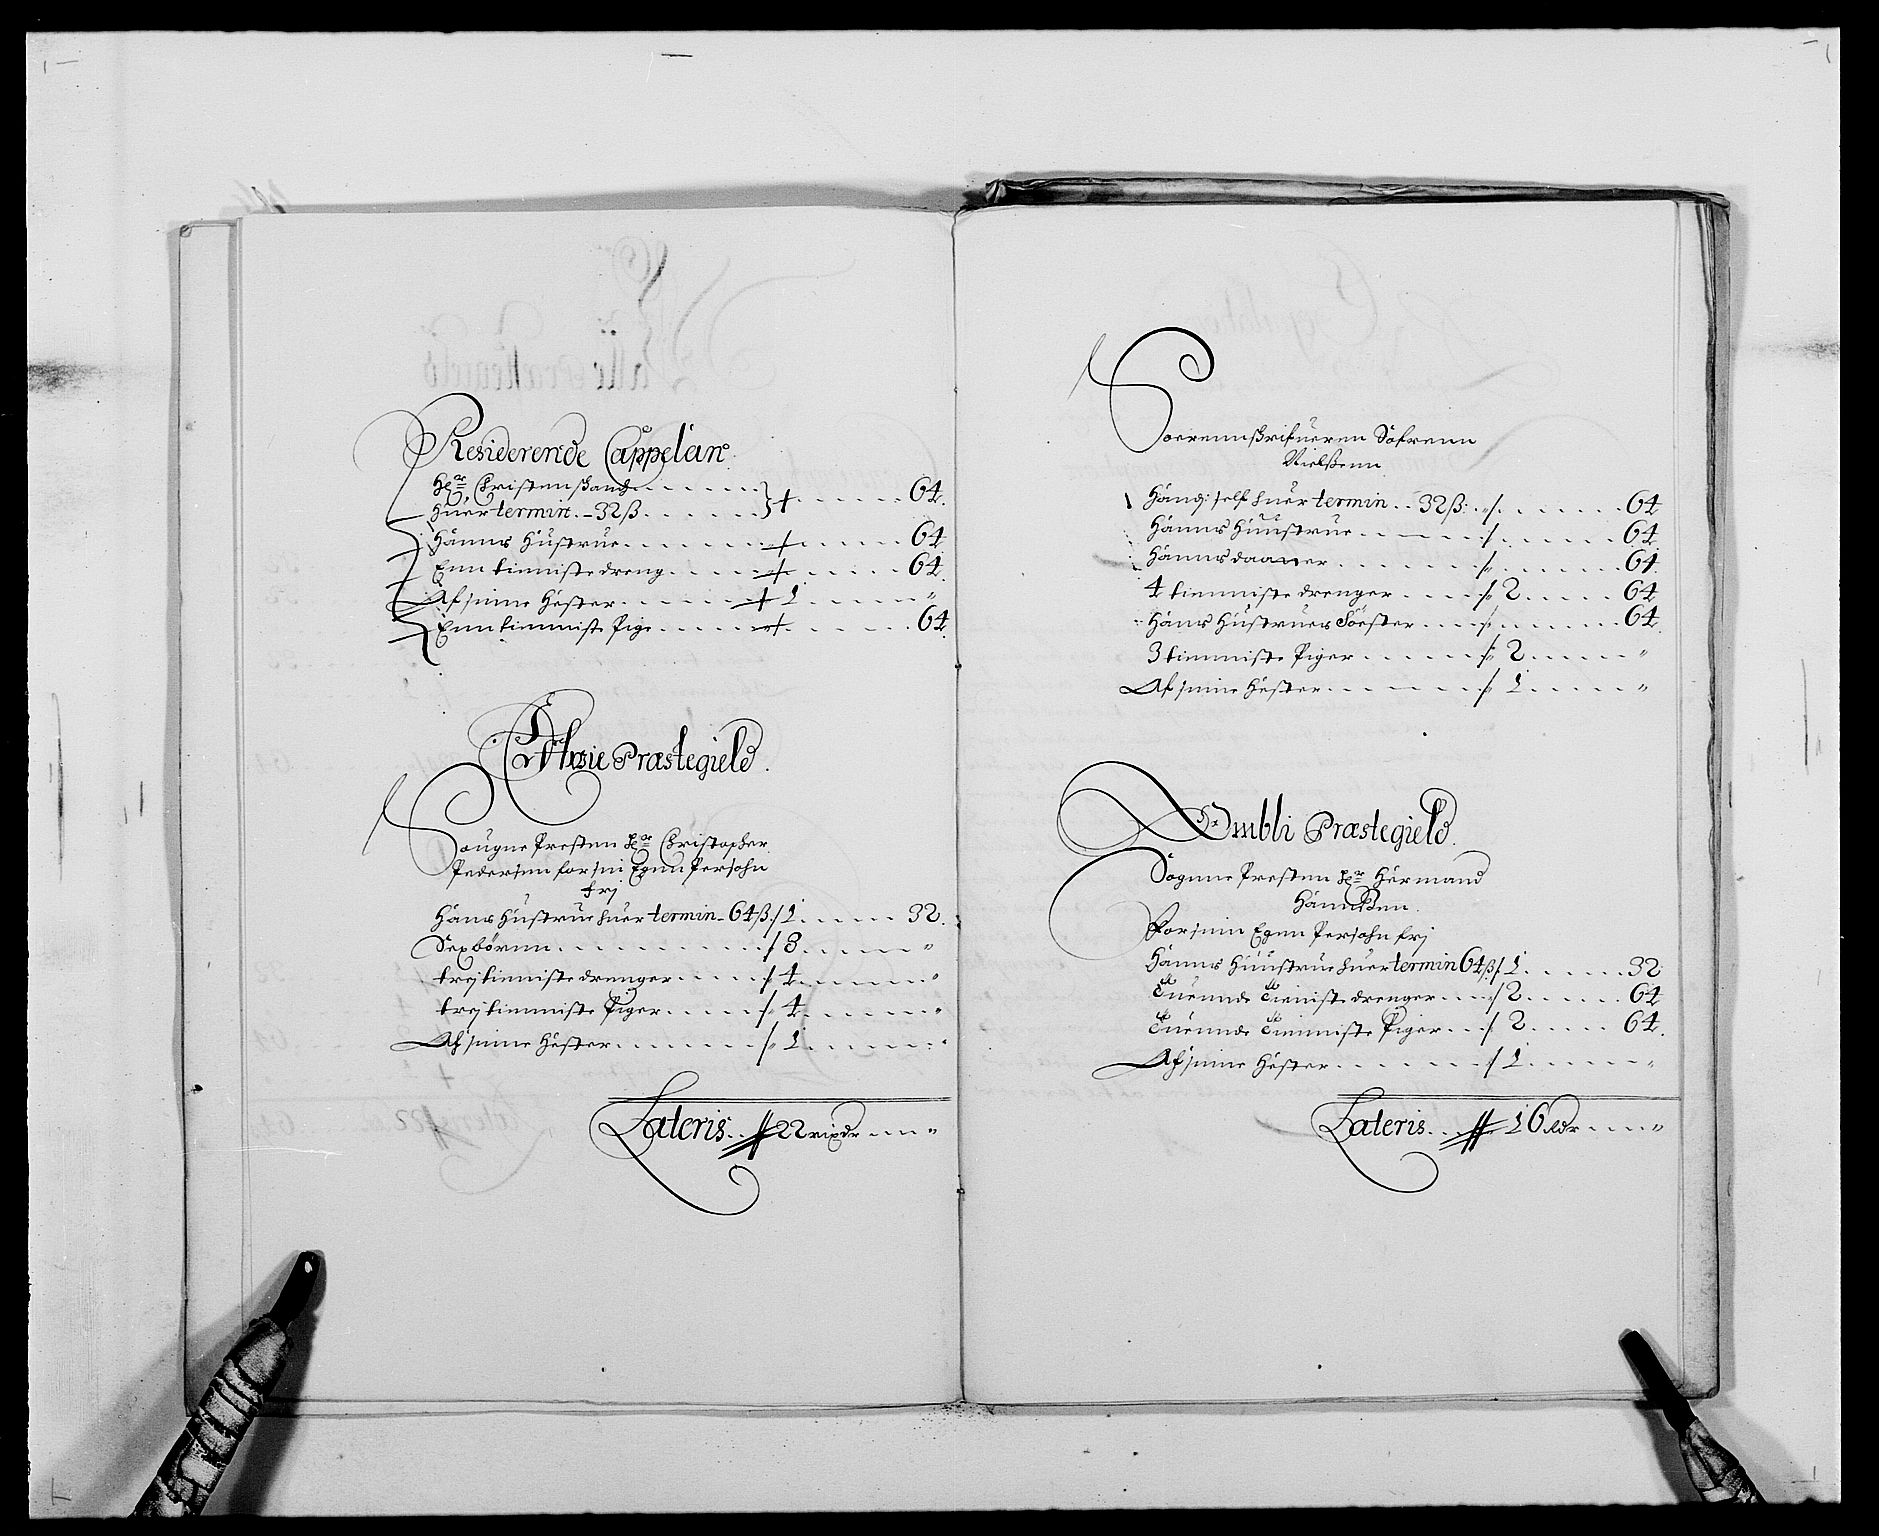 Residerende Cappelan
Hr. Christen
huer termin. - 32 ß . . . . . . 64.
Hanns Hustrue . . . . . . 64
Enn tienniste dreng . . . . . . 64.
Af sinne Hester . . . . . 1 . . . . . „
Enn tienniste Pige . . . . . . 64.
Præstegield.
Sougne Presten Hr. Christopher
Pedersen for sin Egenn Persohn
frj
Hans Hustrue huer termin - 64 ß / 1 . . . . . 32.
Sex børnn . . . . . / 3 . . . . . „
trej tienniste drenger . . . . . / 4 . . . . . „
trej tienniste Piger . . . . . /„ 4 . . . . . „
Af sinne Hester . . . . . /„ 1 . . . . . „
Lateris . . 22 rixdr - - - „
Soerennskrifueren Søfrenn
Nielßenn
Hand self huer termin . . 32 ß . „/ . . . . . 64
Hanns Huustrue . . . . . / . . . . . 64
Hanns daatter . . . . . /„ . . . . . 64.
4 tienniste drenger . . . . /„ 2 . . . . . 64
Hans Hustrues Søester . . . . / . . . . . 64.
3 tienniste Piger . . . . . /„ 2 . . . . . „
Af sinne Hester . . . . . /„ 1 . . . . . „
Ombli Præstegield.
Sogune Presten Hr. Hermand
Hannßen.
For sinn Egenn Persohn frj
Hanns Huustrue huer termin 64 ß / 1 . . . . . 32
Tuennde Tieniste drenger . . . . „/ 2 . . . . . 64
Tuennde Tienniste Piger . . . / 2 . . . . . 64.
Af sinne Hester . . . . . / 1 . . . . . „
Lateris . . . 16 Rdr - - - „